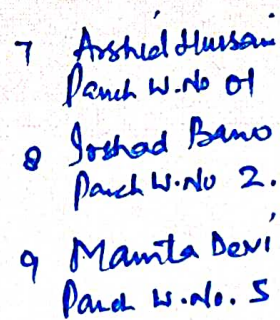 7 Arshid Hussain
Panch W.No 01
8 Irshad Bano
Panch W.No 2.
9 Mamta Devi
Panch W.No. 5